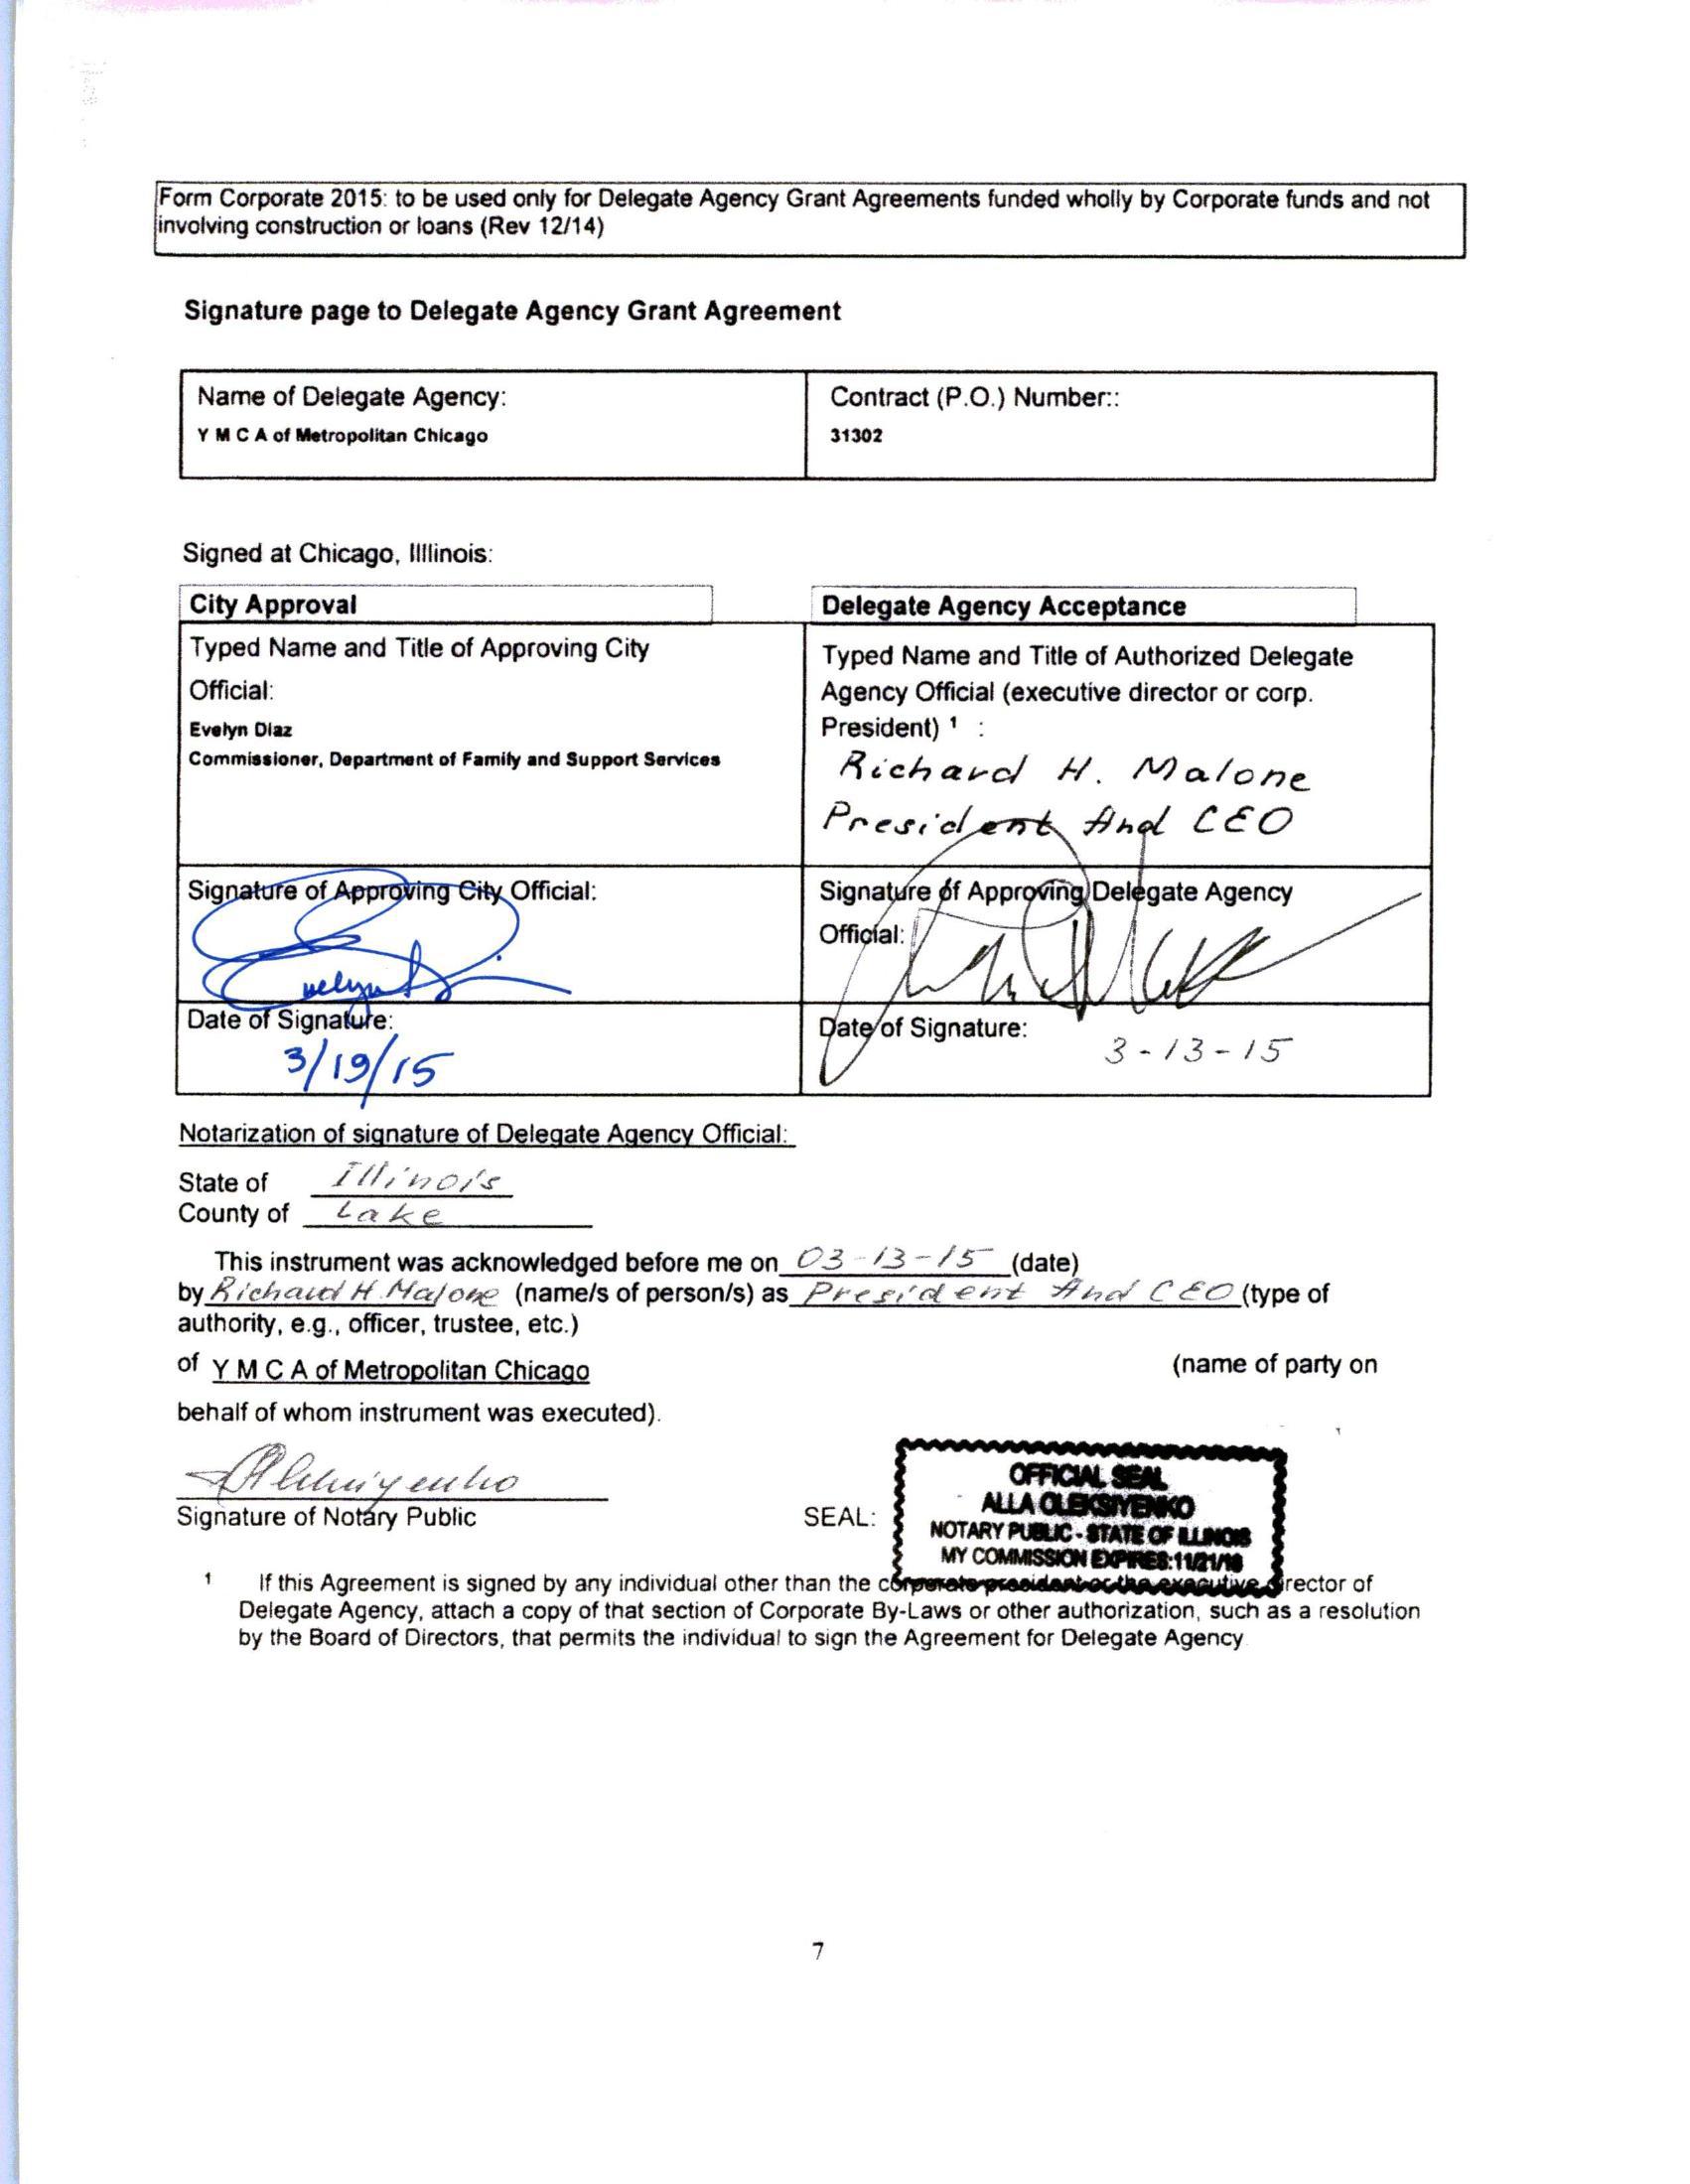 Form Corporate 2015: to be used only for Delegate Agency Grant Agreements funded wholly by Corporate funds and not
involving construction or loans (Rev 12/14)
Signature page to Delegate Agency Grant Agreement
Name of Delegate Agency:
Y M C A of Metropolitan Chicago
Contract (P.O.) Number::
31302
Signed at Chicago, Illlinois:
City Approval
Typed Name and Title of Approving City
Official:
Evelyn Diaz
Commissioner, Department of Family and Support Services
Delegate Agency Acceptance
Typed Name and Title of Authorized Delegate
Agency Official (executive director or corp.
President) 1 :
Richard H. Malone
President And CEO
Signature of Approving City Official:
Evelyn
Signature of Approving Delegate Agency
Official:
Date of Signature:
3/19/15
Date of Signature:
3-13-15
Notarization of signature of Delegate Agency Official:
State of Illinois
County of Lake
This instrument was acknowledged before me on 03-13-15 (date)
by Richard H Malone (name/s of person/s) as President And CEO (type of
authority, e.g., officer, trustee, etc.)
of Y M C A of Metropolitan Chicago (name of party on
behalf of whom instrument was executed).
Signature of Notary Public
SEAL:
OFFICIAL SEAL
ALLA OLEKSIYENKO
NOTARY PUBLIC - STATE OF ILLINOIS
MY COMMISSION EXPIRES:11/21/18
1 If this Agreement is signed by any individual other than the corporate president or the executive director of
Delegate Agency, attach a copy of that section of Corporate By-Laws or other authorization, such as a resolution
by the Board of Directors, that permits the individual to sign the Agreement for Delegate Agency
7